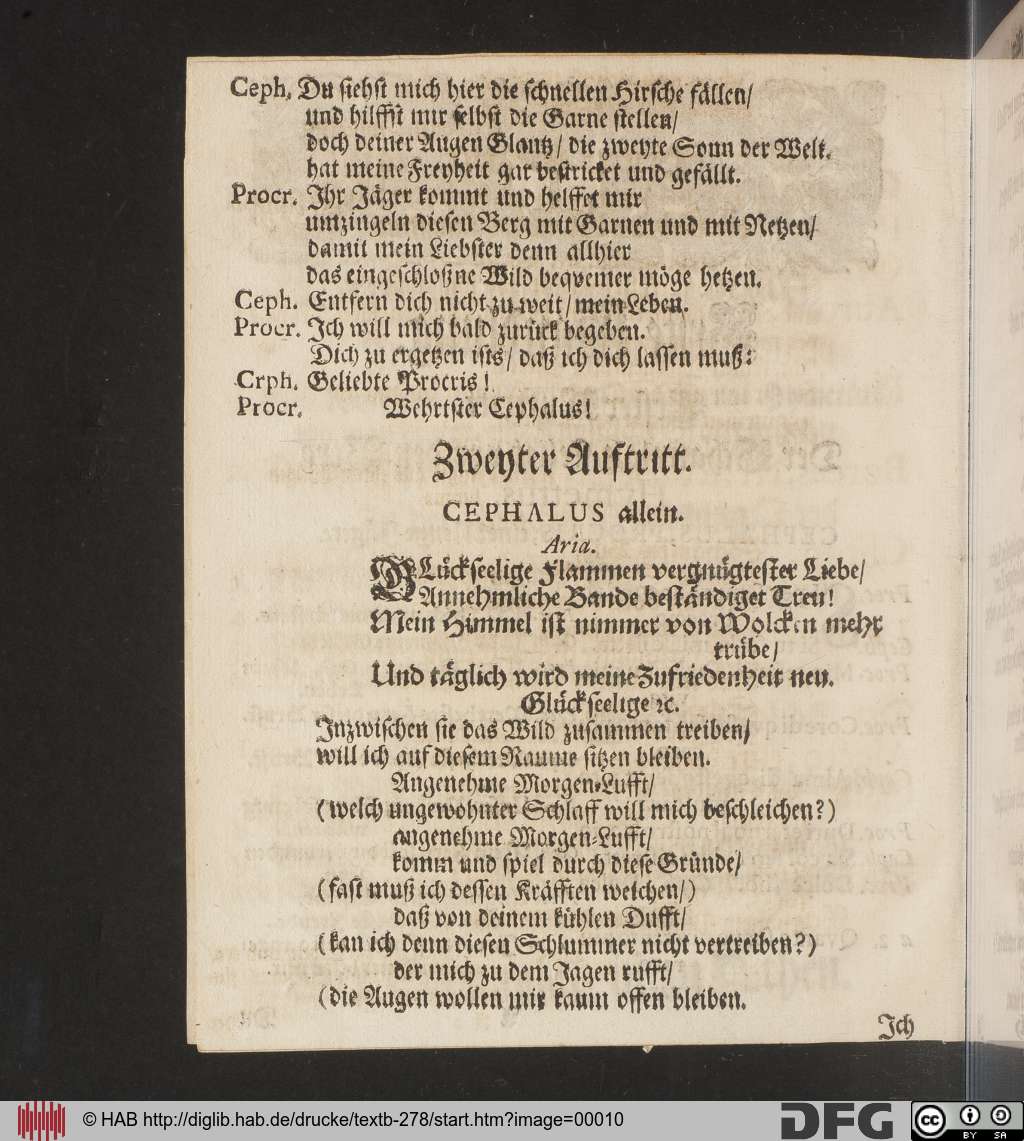 Ceph. Du siehst mich hier die schnellen Hirsche fällen/
und hilffst mir selbst die Garne stellen/
doch deiner Augen Glantz/ die zweyte Sonn der Welt.
hat meine Freyheit gar bestricket und gefällt.
Procr. Ihr Jäger kommt und helffet mir
umzingeln diesen Berg mit Garnen und mit Netzen/
damit mein Liebster denn allhier
das eingeschloßne Wild beqvemer möge hetzen.
Ceph. Entfern dich nicht zu weit/ mein Leben.
Procr. Ich will mich bald zurück begeben.
Dich zu ergetzen ists/ daß ich dich lassen muß:
Crph. Geliebte Procris!
Procr. Wehrtster Cephalus!
Zweyter Auftritt.
CEPHALUS allein.
Aria.
GLückseelige Flammen vergnügtester Liebe/
Annehmliche Bande beständiget Treu!
Mein Himmel ist nimmer von Wolcken mehr
trübe/
Und täglich wird meine Zufriedenheit neu.
Glückseelige ꝛc.
Inzwischen sie das Wild zusammen treiben/
will ich auf diesem Raume sitzen bleiben.
Angenehme Morgen-Lufft/
(welch ungewohnter Schlaff will mich beschleichen?)
angenehme Morgen-Lufft/
komm und spiel durch diese Gründe/
(fast muß ich dessen Kräfften weichen/)
daß von deinem kühlen Dufft/
(kan ich denn diesen Schlummer nicht vertreiben?)
der mich zu dem Jagen rufft/
(die Augen wollen mir kaum offen bleiben.
Ich
© HAB http://diglib.hab.de/drucke/textb-278/start.htm?image=00010
DFG
cc BY SA